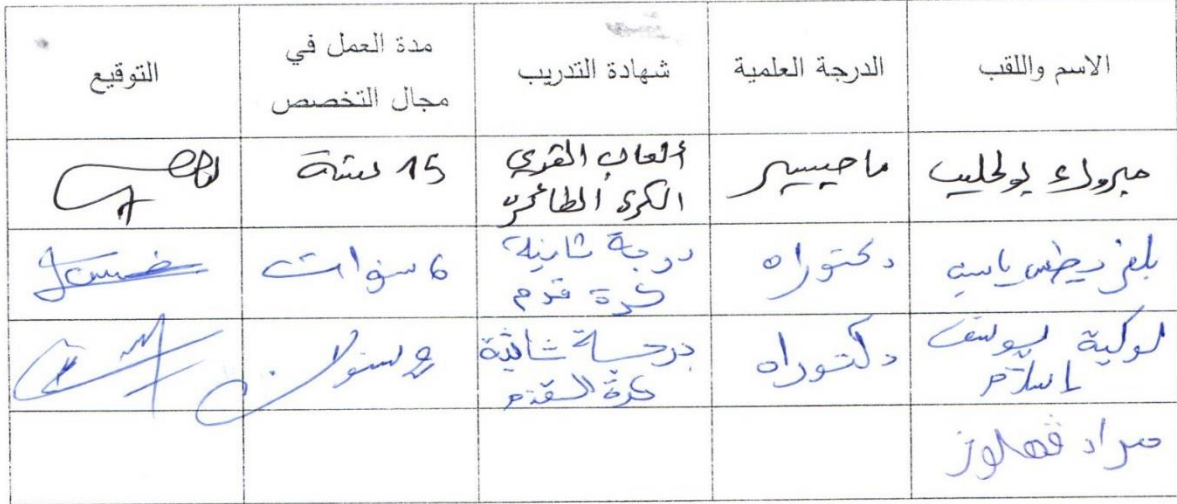 الاسم واللقب
الدرجة العلمية
شهادة التدريب
مدة العمل في
مجال التخصص
التوقيع
مبروك بولحليب
ماجيستير
ألعاب القوى
الكرة الطائرة
15 سنة
ياسين
دكتوراه
درجة ثانية
كرة قدم
6 سنوات
لوكية يوسف
إسلام
دكتوراه
درجة ثانية
كرة القدم
سنوات
مراد قهلوز